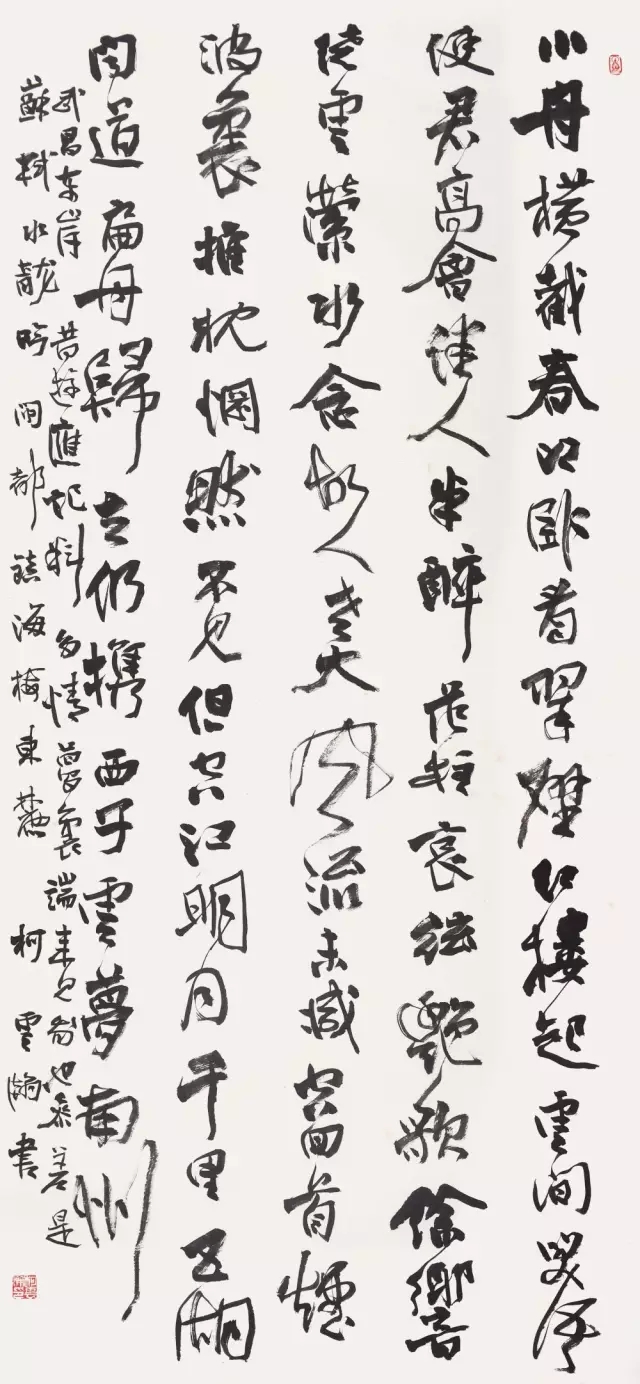 小舟橫截春江臥看翠壁紅樓起雲間笑語
使君高會佳人半醉危柱哀弦艷歌餘響
繞雲縈水念故人老大風流未減空回首煙
波裏推枕惘然不見但空江明月千里五湖
聞道扁舟歸去仍攜西子雲夢南州
武昌东岸昔遊應記料多情夢裏端來見我也參差是
蘇軾水龍吟 閩都鎮海梅東麓 柯雲瀚書